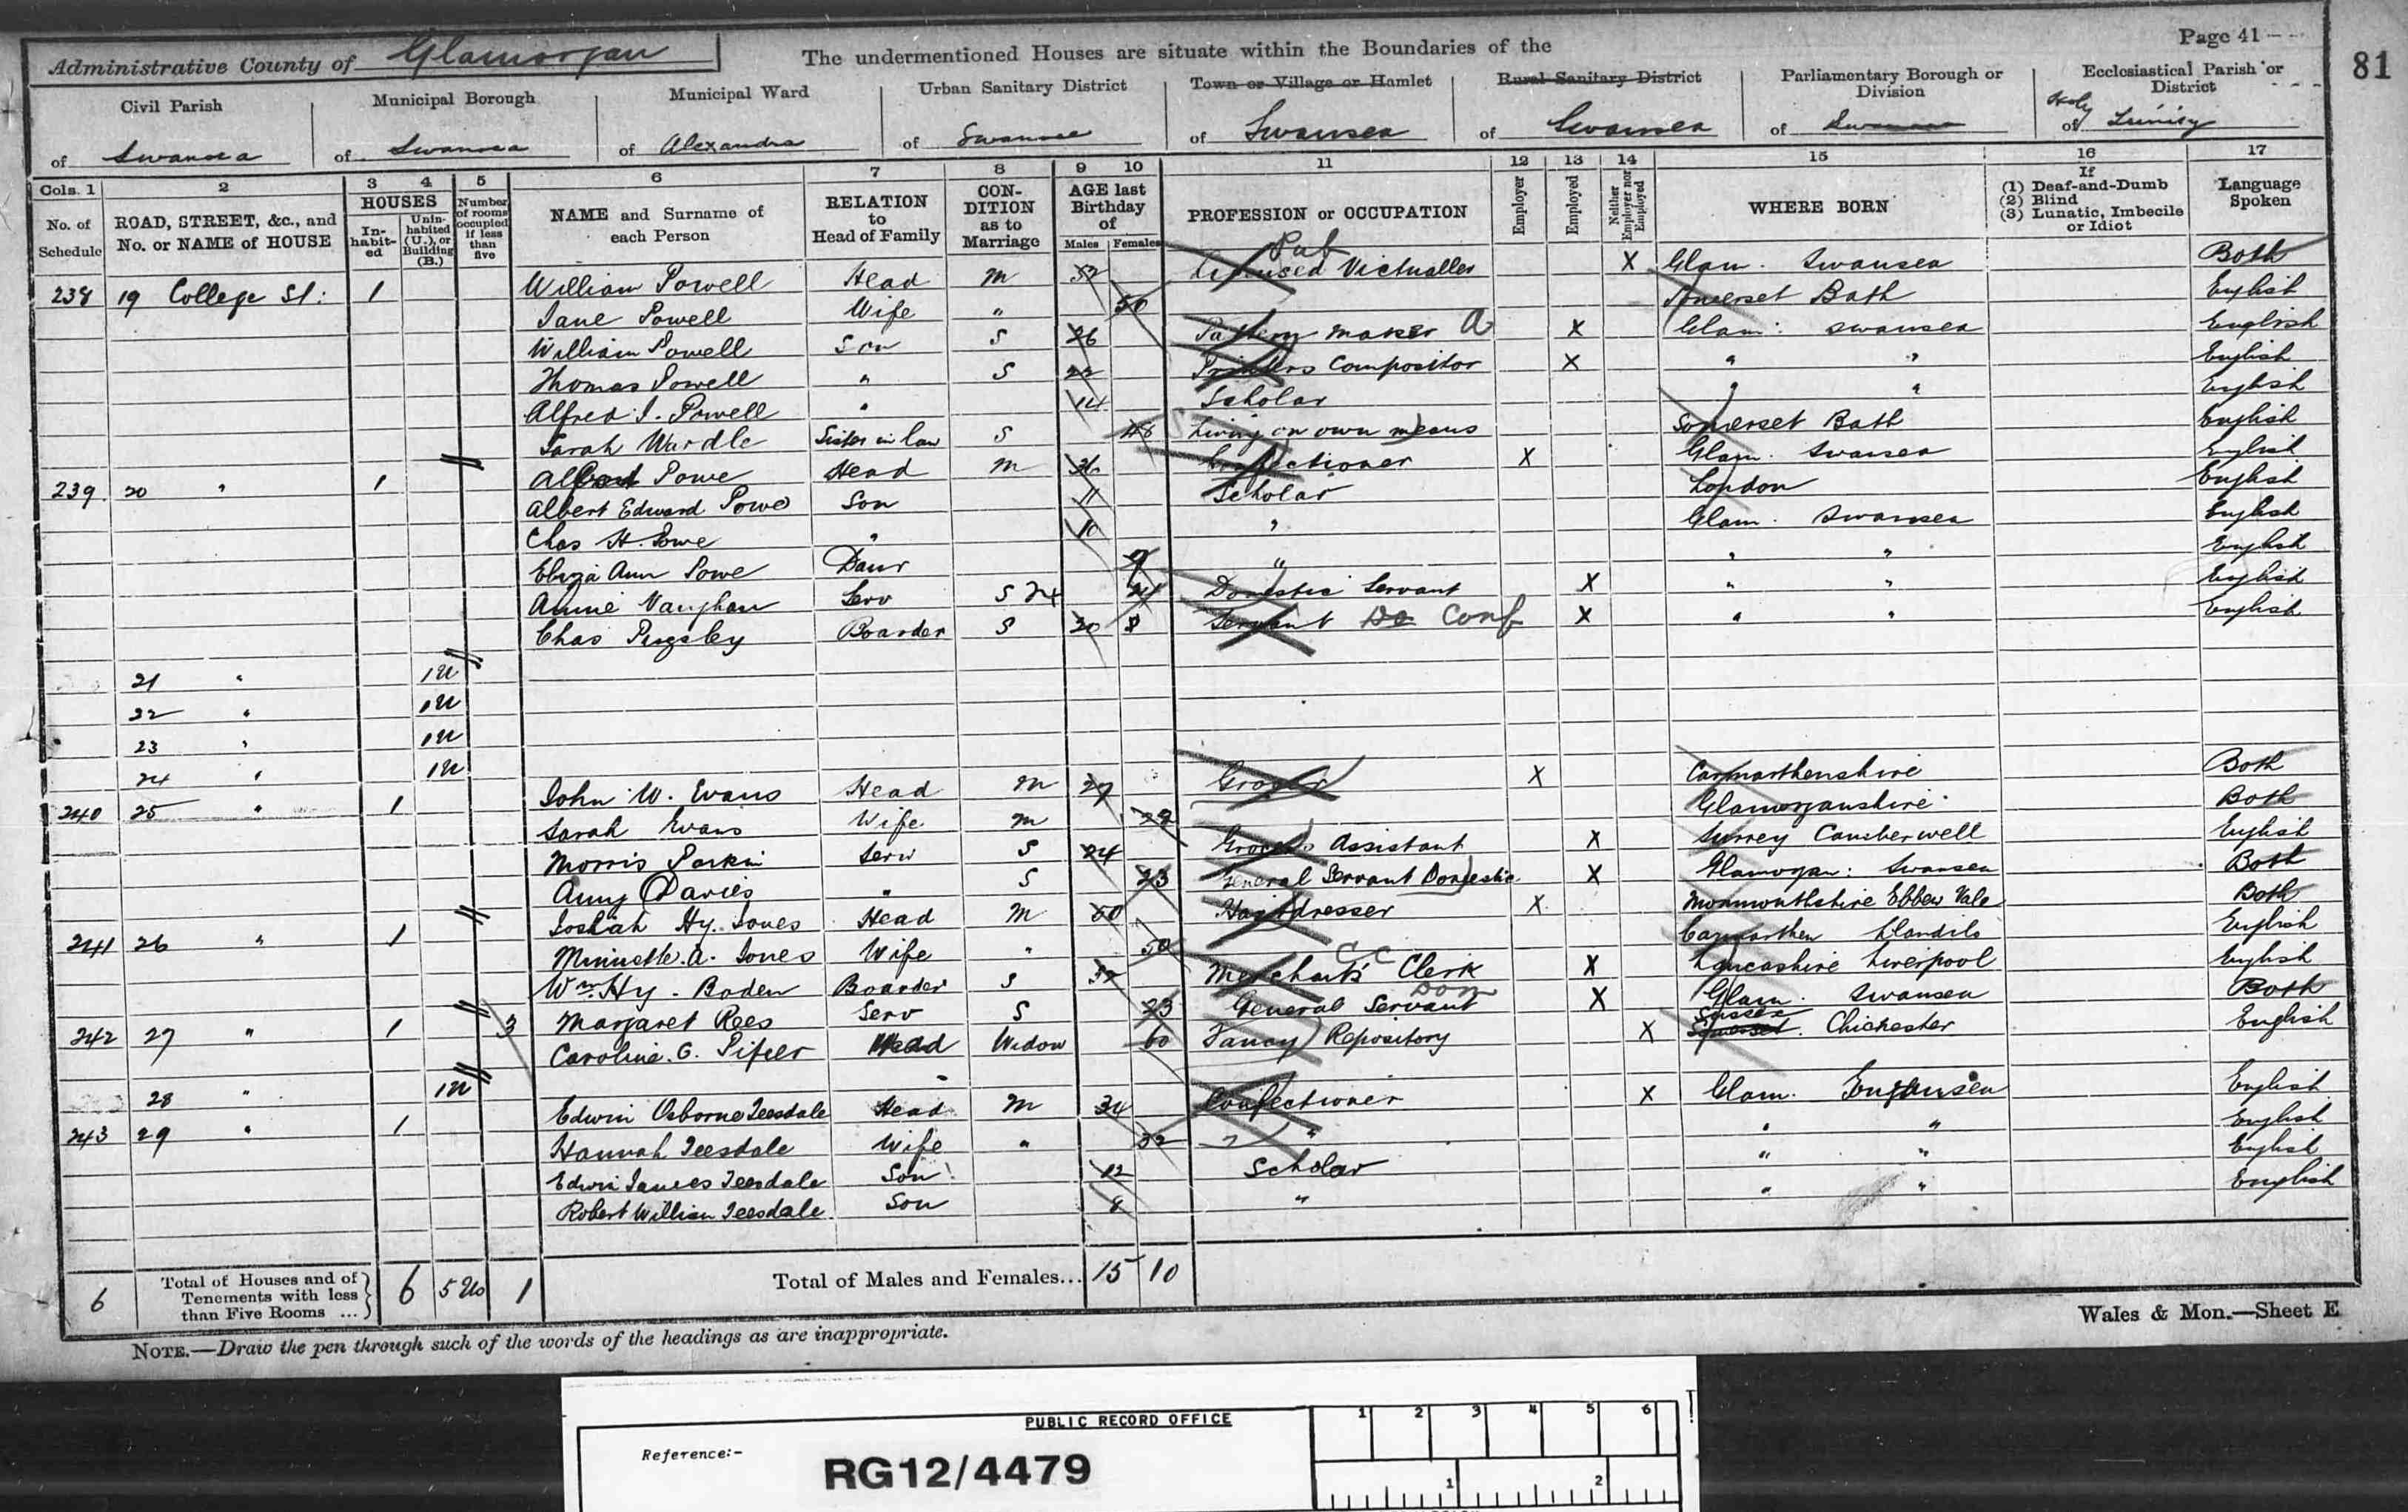 Page 41
81
Administrative County of Glamorgan
The undermentioned Houses are situate within the Boundaries of the
Civil Parish of Swansea
Municipal Borough of Swansea
Municipal Ward of Alexandra
Urban Sanitary District of Swansea
Town or Village or Hamlet of Swansea
Rural Sanitary District of Swansea
Parliamentary Borough or Division of Swansea
Ecclesiastical Parish or District of Holy Trinity
Cols. 1 2 3 4 5 6 7 8 9 10 11 12 13 14 15 16 17
No. of Schedule
ROAD, STREET, &c., and No. or NAME of HOUSE
HOUSES
In-habit-ed
Unin-habited (U.), or Building (B.)
Number of rooms occupied if less than five
NAME and Surname of each Person
RELATION to Head of Family
CON-DITION as to Marriage
AGE last Birthday of
Males Females
PROFESSION or OCCUPATION
Employer
Employed
Neither Employer nor Employed
WHERE BORN
If (1) Deaf-and-Dumb (2) Blind (3) Lunatic, Imbecile or Idiot
Language Spoken
238 19 College St: 1 William Powell Head M 52 Licensed Victualler Pub X Glam. Swansea Both
Jane Powell Wife " 50 Somerset Bath English
William Powell Son S 26 Pattern Maker a X Glam: Swansea English
Thomas Powell " S 22 Printers Compositor X " " English
Alfred J. Powell " 14 Scholar " " English
Sarah Wardle Sister in law S 46 Living on own means Somerset Bath English
239 20 " 1 Albert Powe Head M 36 Confectioner X Glam. Swansea English
Albert Edward Powe Son 11 Scholar London English
Chas H. Powe " 10 " Glam. Swansea English
Eliza Ann Powe Daur 9 " " " English
Annie Vaughan Serv S 24 24 Domestic Servant X " " English
Chas Pugsley Boarder S 20 Servant Do Conf X " " English
21 " 1U
22 " 1U
23 " 1U
24 " 1U
240 25 " 1 John W. Evans Head M 27 Grocer X Carmarthenshire Both
Sarah Evans Wife M 28 Glamorganshire Both
Morris Parkin Serv S 24 Grocer's Assistant X Surrey Camberwell English
Amy Davies " S 23 General Servant Domestic X Glamorgan: Swansea Both
241 26 " 1 Josiah Hy. Jones Head M 50 Hairdresser X Monmouthshire Ebbw Vale Both
A. Jones Wife " 50 Carmarthen Llandilo English
Wm. Hy. Boden Boarder S 32 Merchant's Clerk C C X Lancashire Liverpool English
Margaret Rees Serv S 23 General Servant Dom X Glam. Swansea Both
242 27 " 1 3 Caroline G. Head Widow 60 Fancy Repository X Somerset Sussex Chichester English
28 " 1U
243 29 " 1 Edwin Osborne Teesdale Head M 34 Confectioner X Glam. Swansea English
Hannah Teesdale Wife " 32 " " " English
Edwin James Teesdale Son 12 Scholar " " English
Robert William Teesdale Son 8 " " " English
6 Total of Houses and of Tenements with less than Five Rooms ... 6 5 Uo 1 Total of Males and Females... 15 10
NOTE.—Draw the pen through such of the words of the headings as are inappropriate.
Wales & Mon.—Sheet E
PUBLIC RECORD OFFICE
Reference:-
RG12/4479
1 2 3 4 5 6
1 2